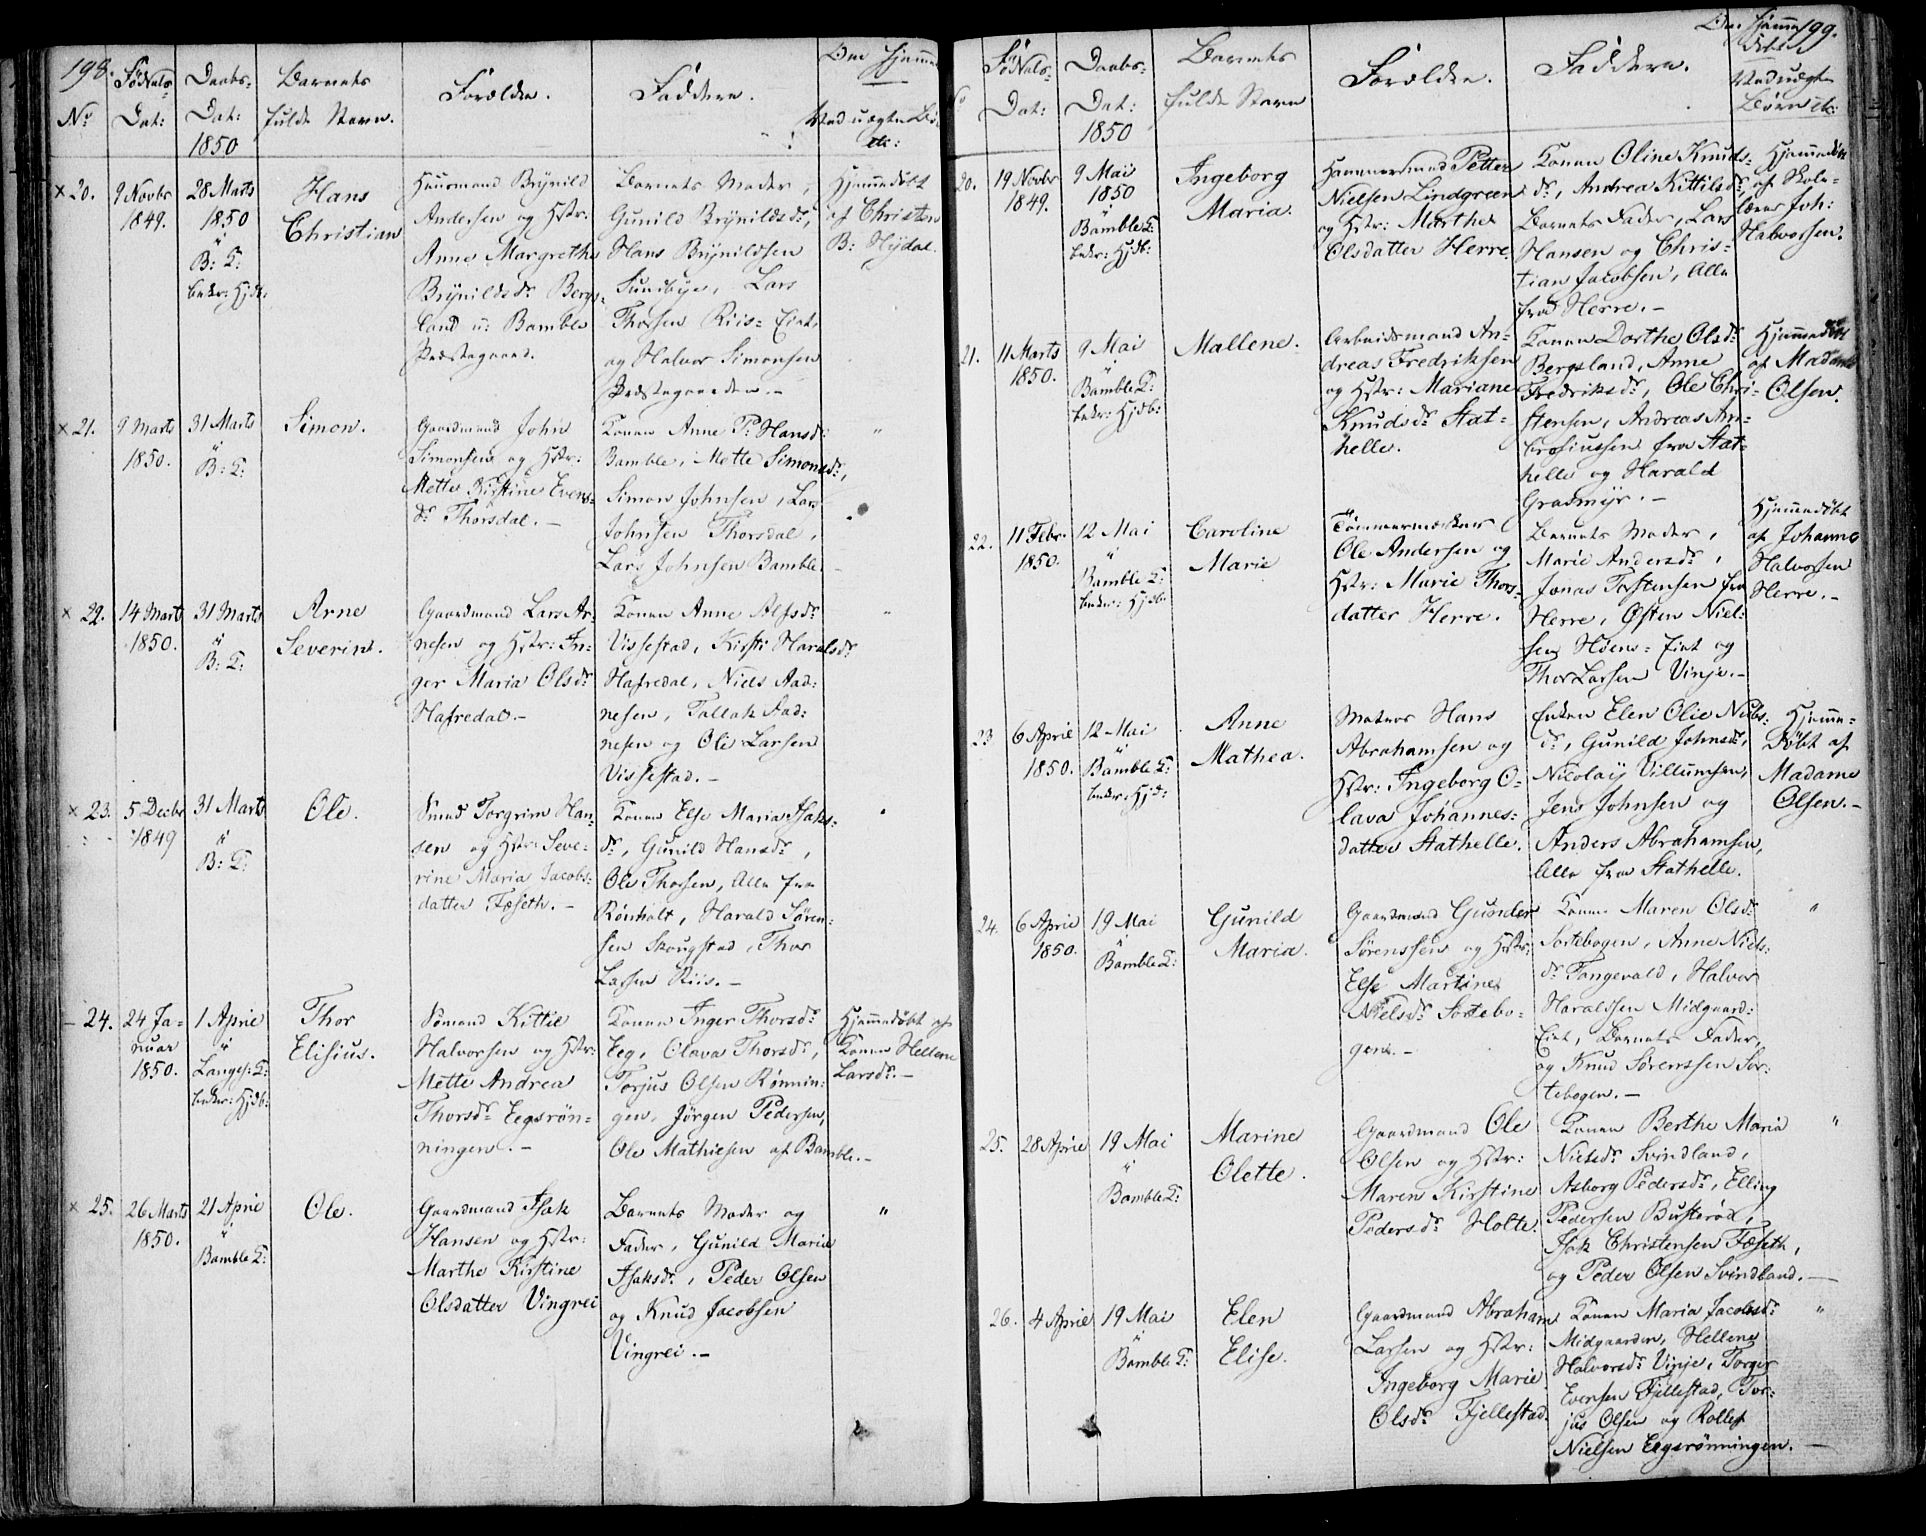 198.
No
Födsels-
Dat:
Daabs-
Dat:
1850
Barnets
fulde Navn.
Forældre.
Faddere.
Om hjemme
Ved uægte Bö
etc:
× 20.
9 Novbr
1849.
28 Marts
1850
i
B: K:
bekr: Hjdb:
Hans
Christian
Huusmand Brynild
Andersen og Hstr:
Anne Margrethe
Brynildsdr Bergs-
land u: Bamble
Præstegaard.
Barnets Moder,
Gunild Brynildsdr,
Hans Brynildsen
Sundbye, Lars
Thorsen Riis-Eiet,
og Halvor Simonsen
Præstegaarden.-
Hjemmedöbt
af Christen
B: Hydal.
× 21.
9 Marts
1850.
31 Marts
i
B: K:
Simon.
Gaardmand John
Simonsen og Hstr:
Mette Kirstine Evens-
dr Thorsdal.-
Konen Anne P. Hansdr
Bamble, Mette Simonsdr,
Simon Johnsen, Lars
Johnsen Thorsdal,
Lars Johnsen Bamble
"
× 22.
14 Marts
1850.
31 Marts
i
B: K:
Arne
Severin.
Gaardmand Lars Ar-
nesen og Hstr: In-
ger Maria Olsdr
Hafredal.-
Konen Anne Alfsdr
Vissestad, Kirsti Haralsdr
Hafredal, Niels Aad-
nesen, Tallak Aad-
nesen og Ole Larsen
Vissestad.-
"
× 23.
5 Decbr
1849
31 Marts
i
B: K:
Ole.
Smed Torgrim Han-
sen og Hstr: Seve-
rine Maria Jacobs-
datter Fæseth.-
Konen Else Maria Isaks-
dr, Gunild Hansdr,
Ole Thorsen, Alle fra
Rönholt, Harald Sören-
sen Skougstad, Thor
Larsen Riis.-
"
- 24.
24 Ja-
nuar
1850.
1 April
i
Langes: K:
bekr: Hjdb:
Thor
Elisius.
Sömand Kittil
Halvorsen og Hstr:
Mette Andrea
Thorsdr Eegsrön-
ningen.-
Konen Inger Thorsdr
Eeg, Olava Thorsdr,
Torjus Olsen Rönnin-
gen, Jörgen Pedersen,
Ole Mathiesen af Bamble.-
Hjemmedöbt af
Konen Hellene
Larsdr.-
× 25.
26 Marts
1850.
21 April
i
Bamble K:
Ole.
Gaardmand Isak
Hansen og Hstr:
Marthe Kirstine
Olsdatter Vingrei
Barnets Moder og
Fader, Gunild Maria
Isaksdr, Peder Olsen
og Knud Jacobsen
Vingrei.-
"
199.
No
Födsels-
Dat:
Daabs-
Dat:
1850
Barnets
fulde Navn
Forældre.
Faddere.
Om hjemme
döbt
Ved uægte
Börn etc:
20.
19 Novbr
1849.
9 Mai
1850
i
Bamble K:
bekr: Hjdb:
Ingeborg
Maria.
Hammersmed Petter
Nielsen Lindgreen
og Hstr: Marthe
Olsdatter Herre
Konen Oline Knuds-
dr, Andrea Kittilsdr,
Barnets Fader, Lars
Hansen og Chris-
tian Jacobsen, Alle
fra Herre.-
Hjemmedöbt
af Skole-
lærer Joh:
Halvorsen.
21.
11 Marts
1850.
9 Mai
i
Bamble K:
bekr: Hjdb:
Mallene.
Arbeidsmand An-
dreas Fredriksen
og Hstr: Mariane
Knudsdr Stat-
helle.
Konen Dorthe Olsdr
Bergsland, Anne
Fredriksdr, Ole Chri-
stensen, Andreas Am-
brosiussen fra Stat-
helle og Harald
Grasmyr.-
Hjemmedöbt
af Madame
Olsen.
22.
11 Febr.
1850.
12 Mai
i
Bamble K:
bekr: Hjdb:
Caroline
Marie
Tömmermærker
Ole Andersen og
Hstr: Marie Thors-
datter Herre.
Barnets Moder,
Marie Andersdr,
Jonas Torstensen fra
Herre, Östen Niel-
sen Höens-Eiet og
Thor Larsen Vinje.-
Hjemmedöbt
af Johanne
Halvorsen
Herre.-
23
6 April
1850.
12 Mai
i
Bamble K:
bekr: Hjd:
Anne
Mathea.
Matros Hans
Abrahamsen og
Hstr: Ingeborg O-
lava Johannes-
datter Stathelle.
Enken Elen Olie Niels-
dr, Gunild Johnsdr,
Nicolay Villumsen,
Jens Johnsen og
Anders Abrahamsen,
Alle fra Stathelle.
Hjemme-
döbt af
Madame
Olsen.-
24.
6 April
1850.
19 Mai
i
Bamble K:
Gunild
Maria.
Gaardmand Gunder
Sörenssen og Hstr:
Else Martine
Nielsdr Sortebo-
gen.-
Konen Maren Olsdr
Sortebogen, Anne Niels-
dr Tangevald, Halvor
Haralsen Midgaard-
Eiet, Barnets Fader,
og Knud Sörenssen Sor-
tebogen.-
"
25.
28 April
19 Mai
i
Bamble K:
Marine
Olette.
Gaardmand Ole
Olsen og Hstr:
Maren Kirstine
Pedersdr Holte.
Konen Berthe Maria
Nielsdr Svindland,
Asborg Pedersdr, Elling
Pedersen Busteröd,
Isak Christensen Fæseth,
og Peder Olsen Svindland.-
"
26.
4 April
19 Mai
i
Bamble K:
Elen
Elise.
Gaardmand Abraham
Larsen og Hstr:
Ingeborg Marie
Olsdr Fjellestad.
Konen Maria Jacobsdr
Midgaarden, Hellene
Halvorsdr Vinje, Torger
Evensen Fjellestad, Tor-
jus Olsen og Rollef
Nielsen Eegsrönningen.-
"